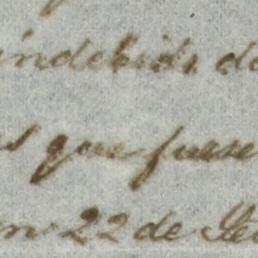 indebida de
s que fuese
en 22 de Se